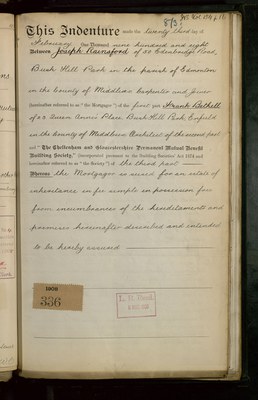 This Indenture made the twenty third day of
February One Thousand nine hundred and eight
Between Joseph Rainsford of 50 Edenbridge Road,
Bush Hill Park in the parish of Edmonton
in the County of Middlesex Carpenter and Joiner
(hereinafter referred to as "the Mortgagor") of the first part Frank Bethell
of 2 Queen Anne's Place Bush Hill Park Enfield
in the County of Middlesex Architect of the second part
and "The Cheltenham and Gloucestershire Permanent Mutual Benefit
Building Society," (incorporated pursuant to the Building Societies' Act 1874 and
hereinafter referred to as "the Society") of the third part
Whereas the Mortgagor is seised for an estate of
inheritance in fee simple in possession free
from incumbrances of the hereditaments and
premises hereinafter described and intended
to be hereby assured
1908
336